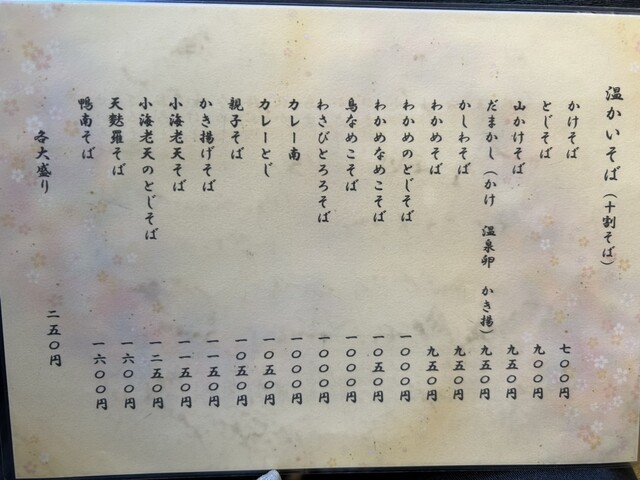 温かいそば（十割そば）
かけそば 七〇〇円
とじそば 九〇〇円
山かけそば 九五〇円
だまかし（かけ 温泉卵 かき揚） 九五〇円
かしわそば 九五〇円
わかめそば 九五〇円
わかめのとじそば 一〇〇〇円
わかめなめこそば 一〇五〇円
鳥なめこそば 一〇〇〇円
わさびとろろそば 一〇〇〇円
カレー南 一〇〇〇円
カレーとじ 一〇五〇円
親子そば 一〇五〇円
かき揚げそば 一一五〇円
小海老天そば 一一五〇円
小海老天のとじそば 一二五〇円
天麩羅そば 一六〇〇円
鴨南そば 一六〇〇円
各大盛り 二五〇円